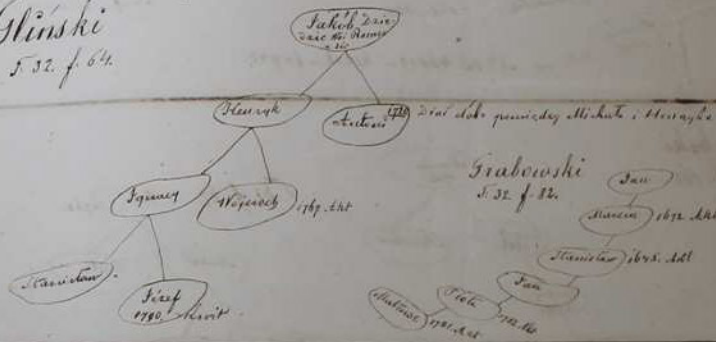 Gliński
T. 32. f. 64.
Jakób Dzie-
dzic
Henryk
Antoni 1726 Dział dóbr pomiędzy Michała i Henryka
Ignacy
Wojciech 1767. Akt
Stanisław
Józef
1790. Kwit
Grabowski
T. 32 f. 82.
Jan
Marcin 1672. Akt
Stanisław 1695. Akt
Jan
Piotr
Mateusz 1781. Akt